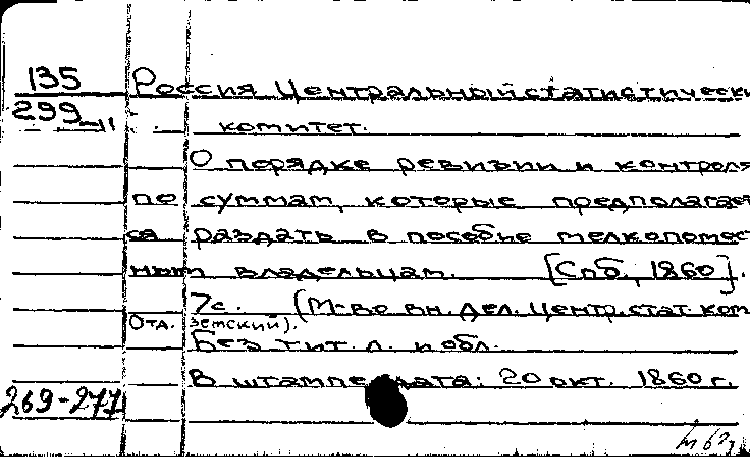 135 Россия Центральный статистически
299
комитет.
О порядке ревизии и контроля
по суммам, которые предполагает
ся раздать в пособие мелкопомест
ным владельцам. [Спб, 1860].
7с. (М-во вн. дел. Центр. стат. ком
Отд. земский).
Без тит. л. и обл.
В штампе дата: 20 окт. 1860 г.
269-277